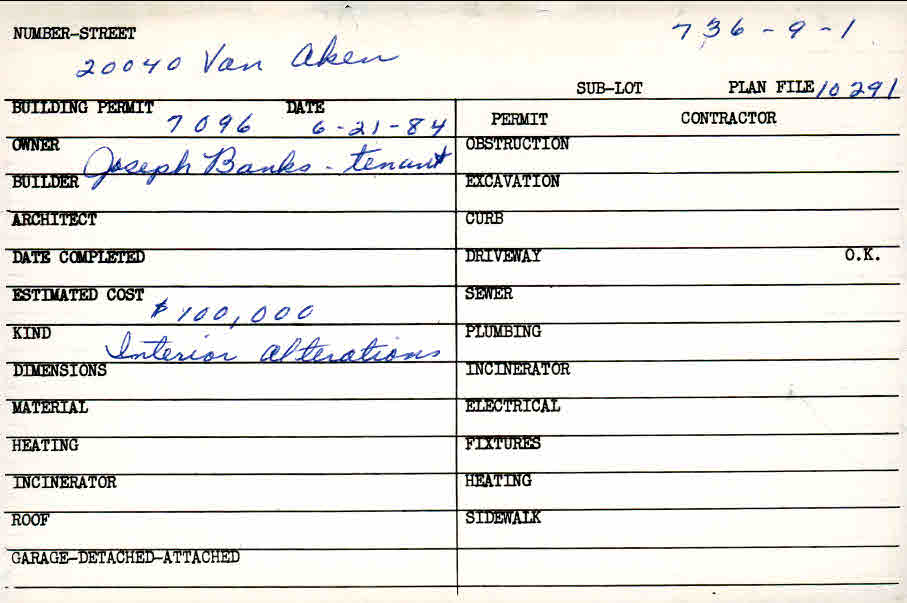 NUMBER-STREET 736-9-1
20040 Van Aken
SUB-LOT PLAN FILE 10291
BUILDING PERMIT DATE
7096 6-21-84
PERMIT CONTRACTOR
OWNER Joseph Banks - tenant
BUILDER
ARCHITECT
DATE COMPLETED
ESTIMATED COST
$100,000
KIND
Interior Alterations
DIMENSIONS
MATERIAL
HEATING
INCINERATOR
ROOF
GARAGE-DETACHED-ATTACHED
OBSTRUCTION
EXCAVATION
CURB
DRIVEWAY O.K.
SEWER
PLUMBING
INCINERATOR
ELECTRICAL
FIXTURES
HEATING
SIDEWALK